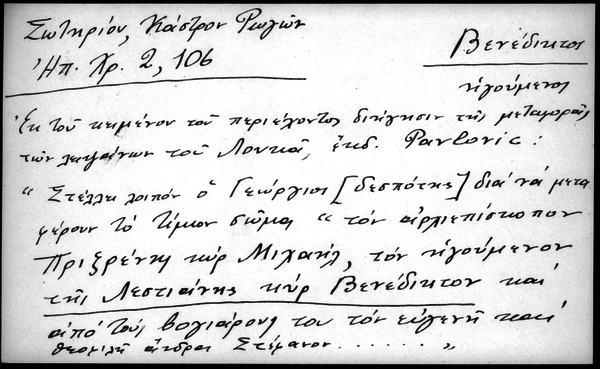 Σωτηρίου, Κάστρον Ρωγῶν
Ἠπ. Χρ. 2, 106
Βενέδικτος
ἡγούμενος
Ἐκ τοῦ κειμένου τοῦ περιέχοντος διήγησιν τῆς μεταφορᾶς
τῶν λειψάνων τοῦ Λουκᾶ, ἐκδ. Pavlovic :
" Στέλλει λοιπόν ὁ Γεώργιος [δεσπότης] διά νά μετα
φέρουν τό τίμιον σῶμα " τόν ἀρχιεπίσκοπον
Πριζρένης κύρ Μιχαήλ, τόν ἡγούμενον
τῆς Λεστιάνης κύρ Βενέδικτον καί
ἀπό τούς βογιάρους του τόν εὐγενῆ καί
θεοφιλῆ ἄνδρα Στέφανον . . . . . . "